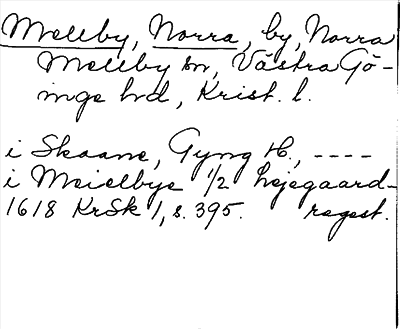 Mellby, Norra, by, Norra
Mellby sn, Västra Gö-
inge hrd, Krist. l.
i Skaane, Gyng H., ----
i Meielbye 1/2 Lejegaard-
1618 KrSk 1, s. 395. regest.